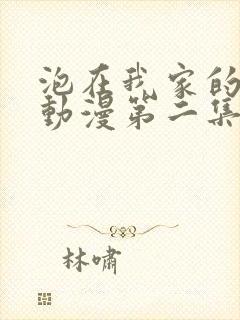 泡在我家的
動漫第二集
林嘯